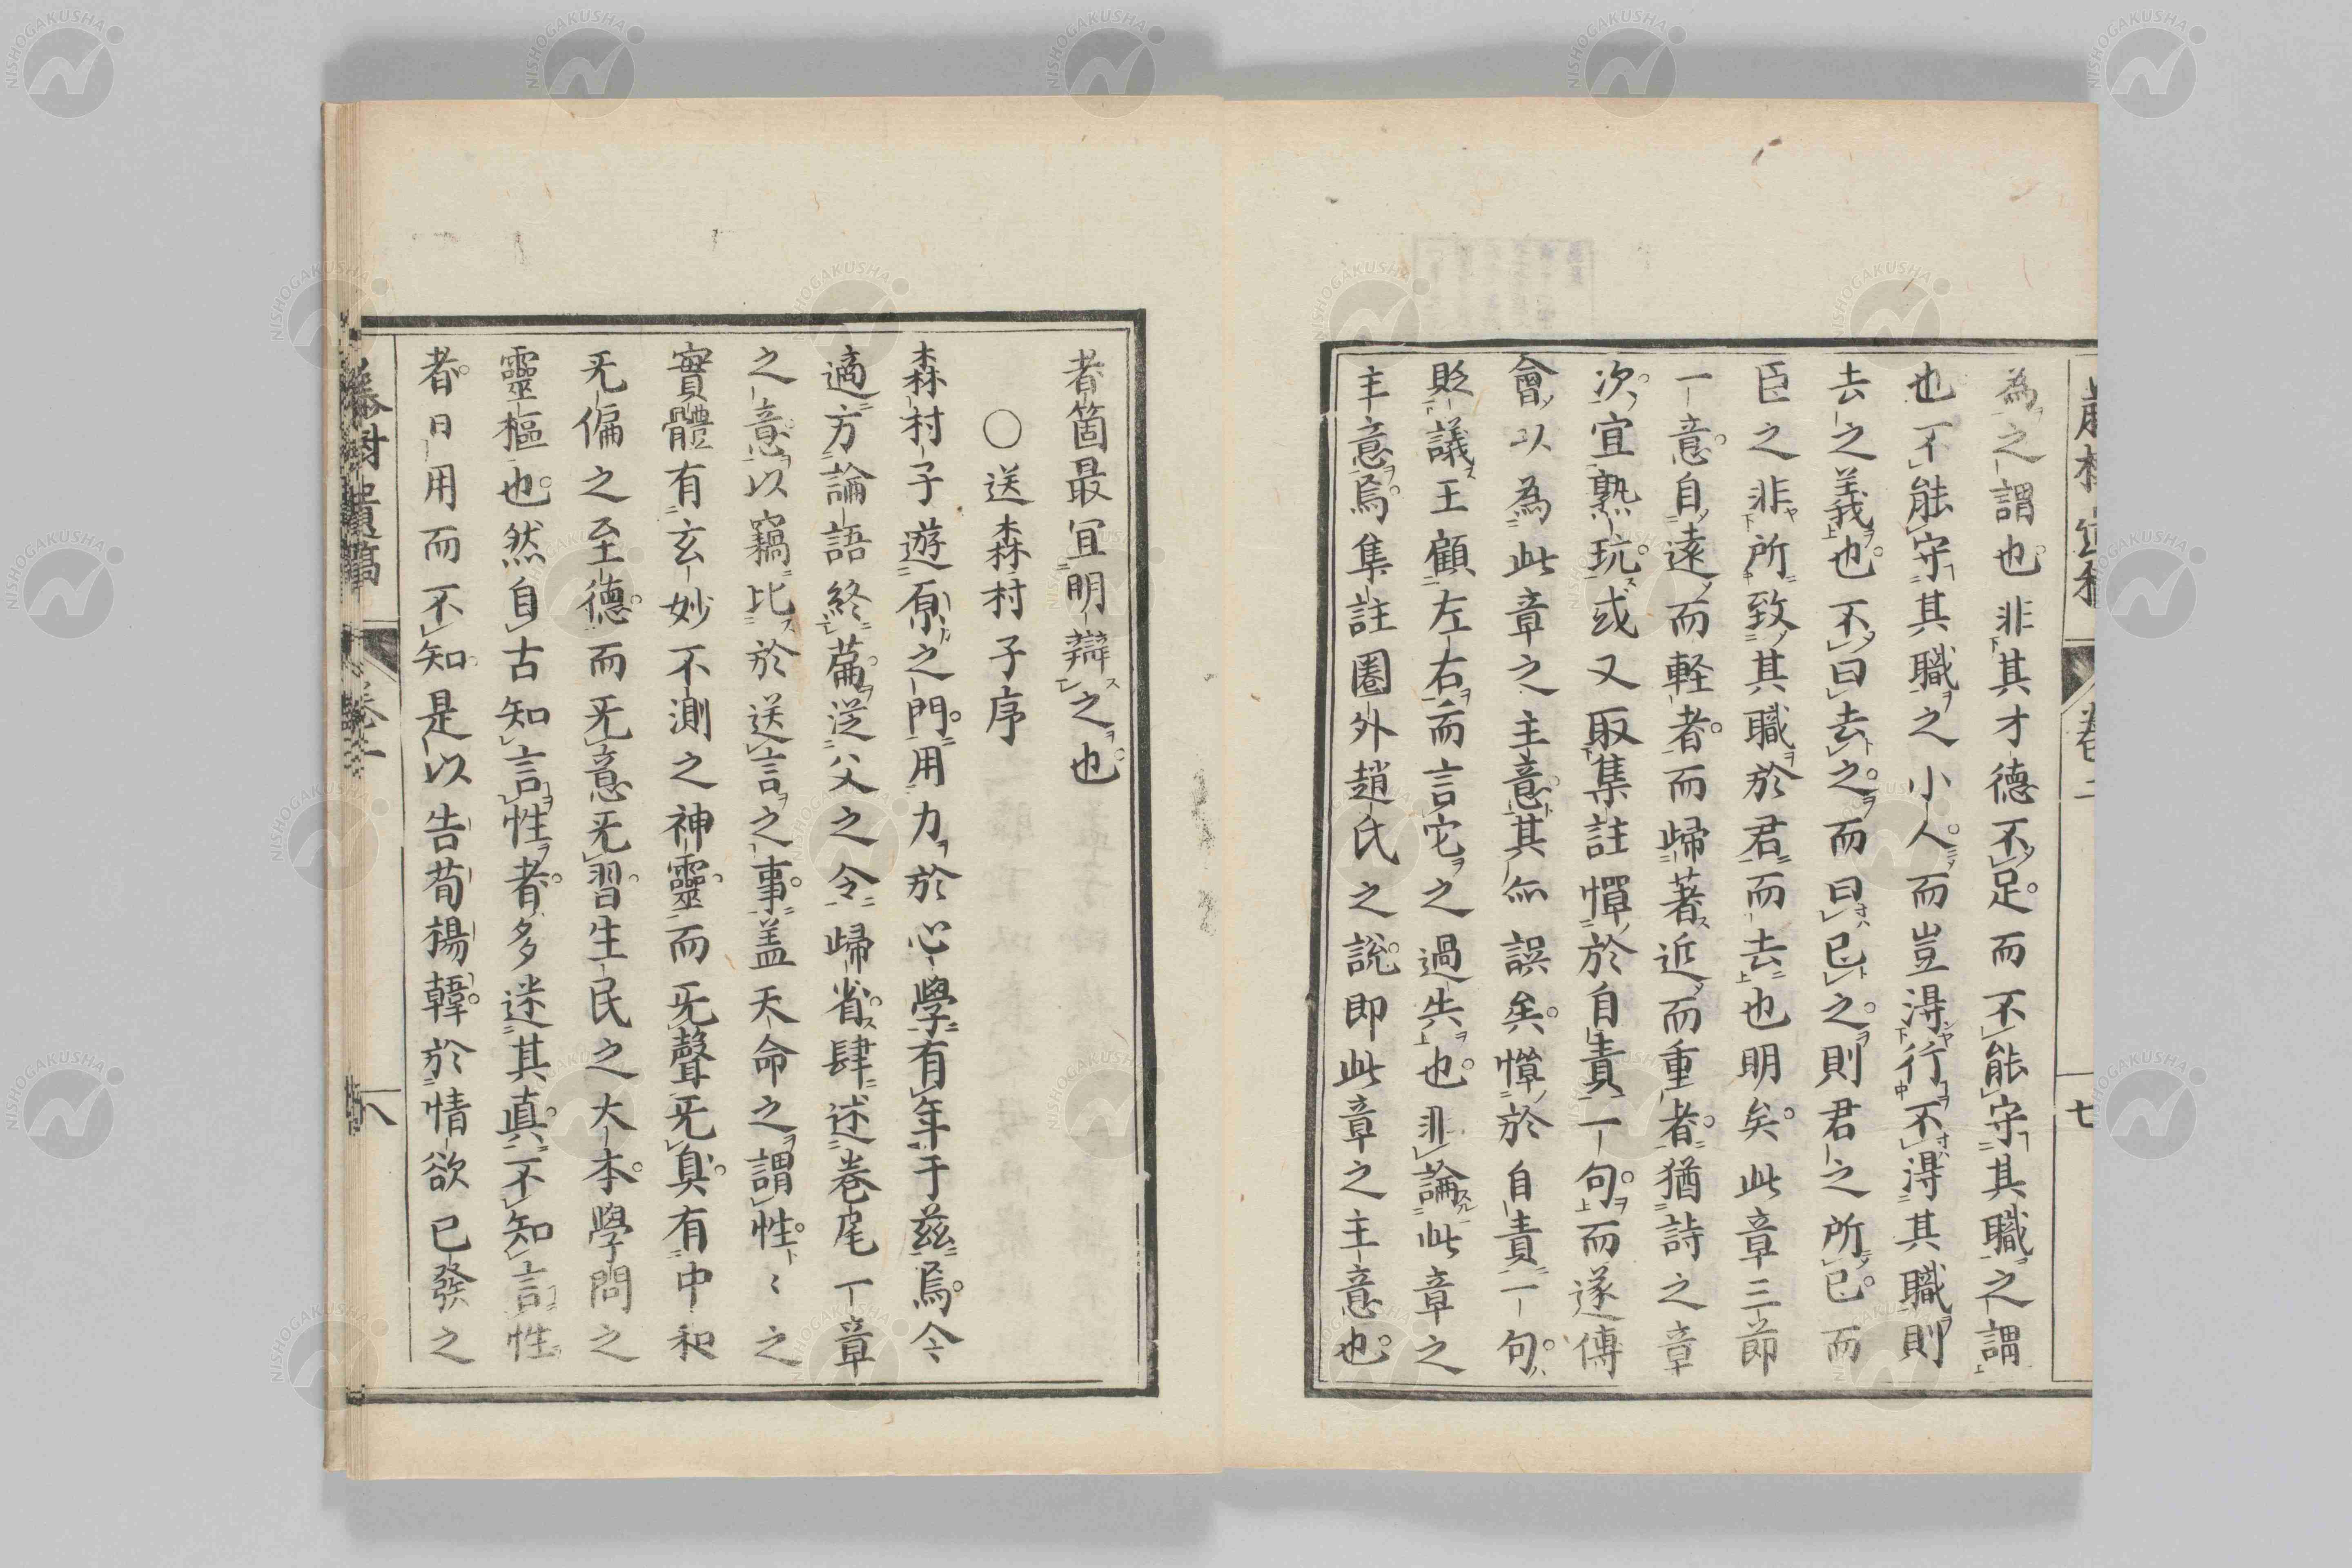 為之謂也非其才德不足而不能守其職之謂
也不能守其職之小人而豈得行不得其職則
去之義也不曰去之而曰已之則君之所已而
臣之非所致其職於君而去也明矣此章三節
一意自遠而軽者而歸著近而重者猶詩之章
次宜熟玩或又取集註憚於自責一句而遂傳
會以為此章之主意其亦誤矣憚於自責一句
貶議王顧左右而言它之過失也非論此章之
主意焉集註圏外趙氏之說即此章之主意也
卷二
七
者箇最宜明辯之也
○送森村子序
森村子遊原之門用力於心學有年于茲焉今
適方論語終篇從父之令歸省肆述卷尾一章
之意以竊比於送言之事盖天命之謂性〻之
實體有玄妙不測之神靈而旡聲旡臭有中和
旡偏之至德而旡意旡習生民之大本學問之
靈樞也然自古知言性者多迷其真不知言性
者日用而不知是以告荀揚韓於情欲已發之
藤樹遺稿
卷二
八
NISHOGAKUSHA